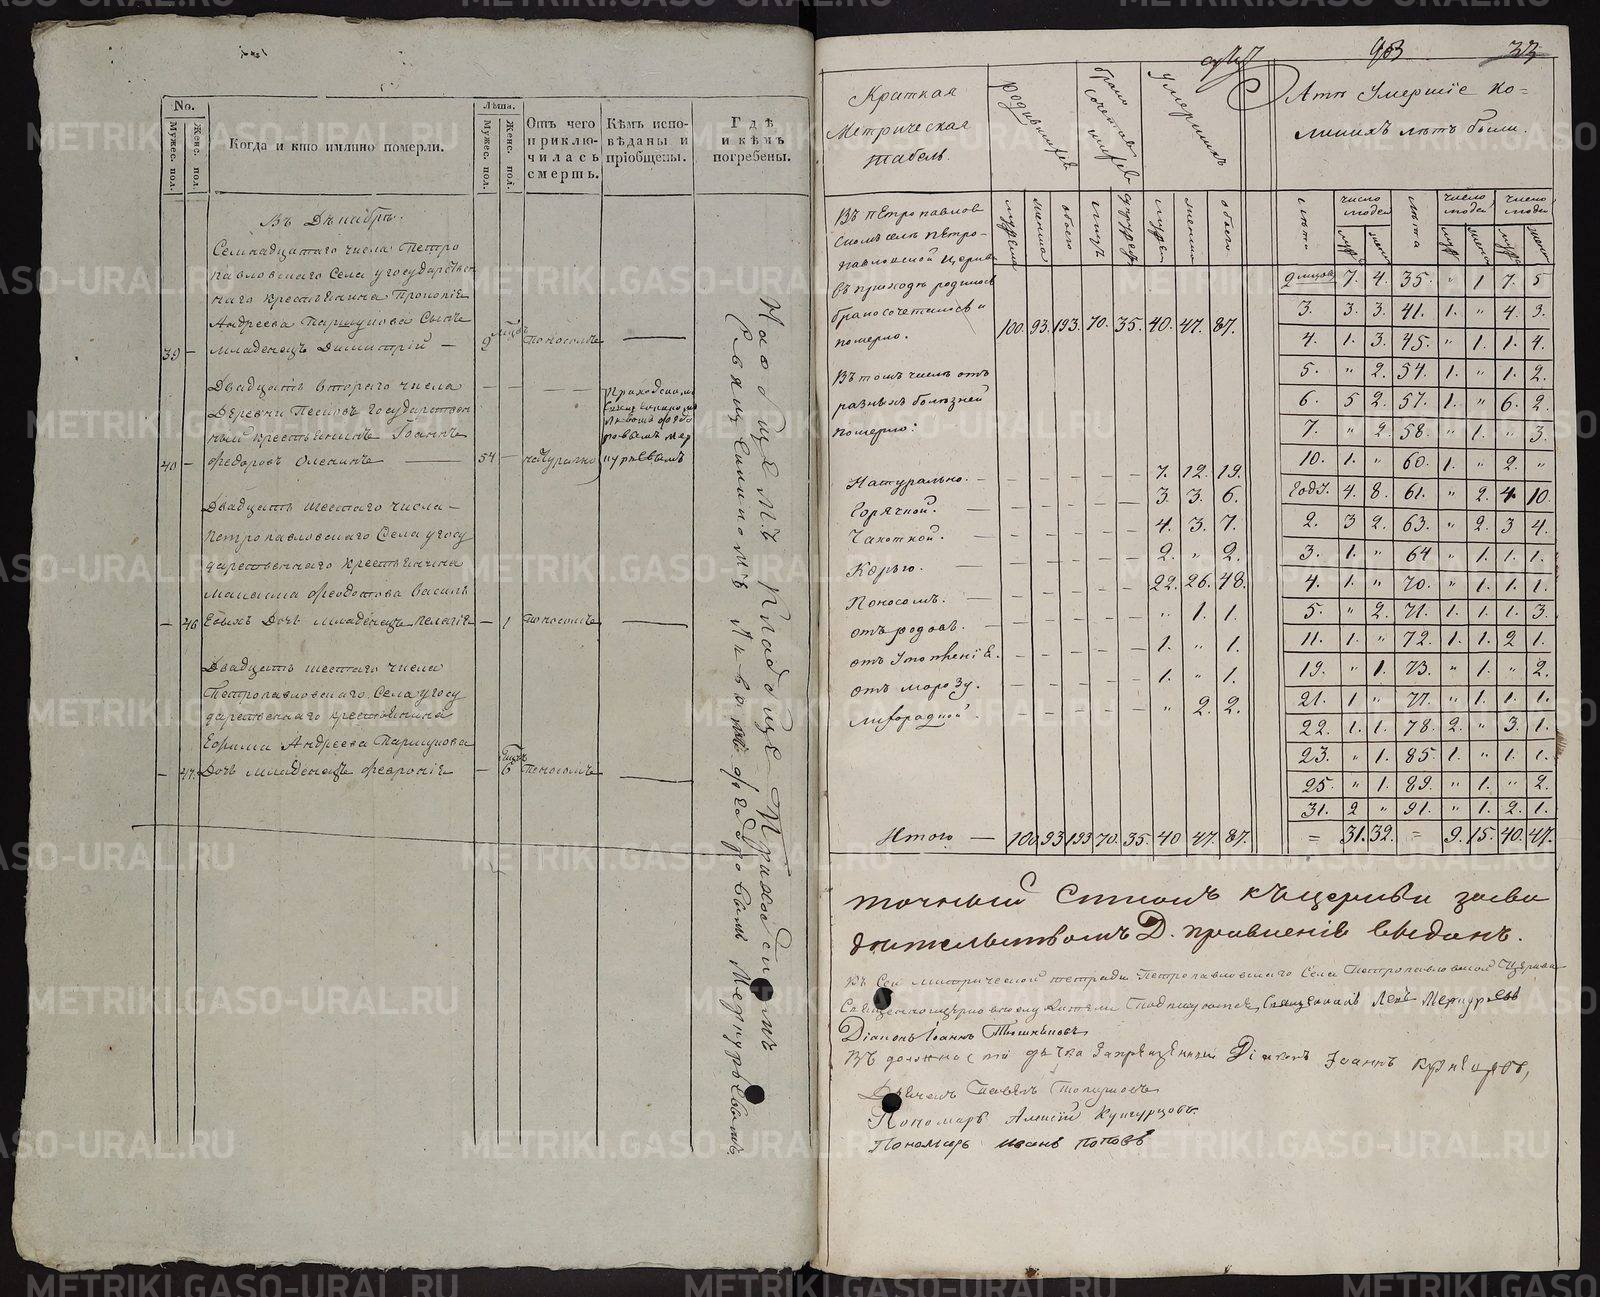 No.
Мужес. пол.
Женс. пол.
Когда и кто имянно померли.
Лѣта.
Мужес. пол.
Женс. пол.
Отъ чего
приклю-
чилась
смерть.
Кѣмъ испо-
вѣданы и
пріобщены.
Гдѣ
и кѣмъ
погребены.
Въ Декабрѣ.
Семнадцатаго числа Петро
павловскаго Села у государствен
наго крестьянина Прокопія
Андреева Паршукова Сынъ
39 — младенецъ Димитрій — 9 мѣсяц. поносомъ
Двадцать втораго числа
Деревни государствен
ный крестьянинъ Іоаннъ
40 — Федоровъ Оленинъ — 54 — натурально
Приходскимъ
Священникомъ
Львомъ Федо
ровымъ Мер
курьевымъ
Двадцать шестаго числа —
Петропавловскаго Села у госу
дарственнаго крестьянина
Феодотова Василь
— 46 евыхъ Дочь младенецъ Пелагія — 1 поносомъ
Двадцать шестаго числа
Петропавловскаго Села у госу
дарственнаго крестьянина
Ефима Андреева Паршукова
— 47. Дочь младенецъ Феврония — 6 поносомъ
На общемъ кладбище Приходскимъ
Священникомъ Львомъ Федоровымъ Меркурьевымъ
93 33
Краткая
Метрическая
табель.
родившихся
брако
сочетав
шихся
умершихъ
Лѣтъ Умершіе ко-
ликихъ лѣтъ были.
мужска
женска
обоего
мужска
женска
обоего
лѣта
число
людей
лѣта
число
людей
число
людей
Въ Петропавлов
скомъ селѣ Петро-
павловской Церкви
въ приходѣ родилось
бракосочетались и
померло. 100. 93. 193. 70. 35. 40. 47. 87.
Въ томъ числѣ отъ
разныхъ болѣзней
померло:
Натурально. — 7. 12. 19.
Горячкой. — 3. 3. 6.
Чахоткой. — 4. 3. 7.
Корью. — 2. " 2.
Поносомъ. — 22. 26. 48.
отъ родовъ. — " 1. 1.
отъ Утопленіе. — 1. " 1.
отъ морозу. — 1. " 1.
лихорадкой. — " 2. 2.
Итого — 100 93 193 70. 35. 40 47. 87.
9 мѣсяцов. 7. 4. 35. " 1 7. 5
3. 3. 3. 41. 1. " 4. 3.
4. 1. 3. 45. " 1. 1. 4.
5. " 2. 54. 1. " 1. 2.
6. 5 2. 57. 1. " 6. 2.
7. " 2. 58. " 1. " 3.
10. 1. " 60. 1. " 2. "
1 году. 4. 8. 61. " 2. 4. 10.
2. 3 2. 63. " 2. 3 4.
3. 1. " 64 " 1. 1. 1.
4. 1. " 70. " 1. 1. 1.
5. " 2. 71. 1. 1. 1. 3.
11. 1. " 72. 1. 1. 2 1.
19. " 1. 73. " 1. " 2.
21. 1 " 77. " 1. 1. 1.
22. 1. 1. 78. 2. " 3. 1.
23. " 1. 85. 1. " 1. 1.
25. " 1. 89. " 1. " 2.
31. 2 " 91. " 1. 2. 1.
= 31. 32. = 9. 15. 40. 47.
точный Списокъ къ церкви засви
дѣтельствомъ Д. правленія выданъ.
Въ Сей метрической тетради Петропавловскаго Села Петропавловской Церкви
Священноцерковнослужители Подписуются, Священникъ Левъ Меркурьевъ
Діаконъ Іоаннъ
Въ должности дьячка Запрещенный Діаконъ Іоаннъ Кузнецовъ,
Дьячекъ Павелъ Топорковъ
Пономарь Алексій Кунгурцовъ
Пономарь Иванъ Поповъ